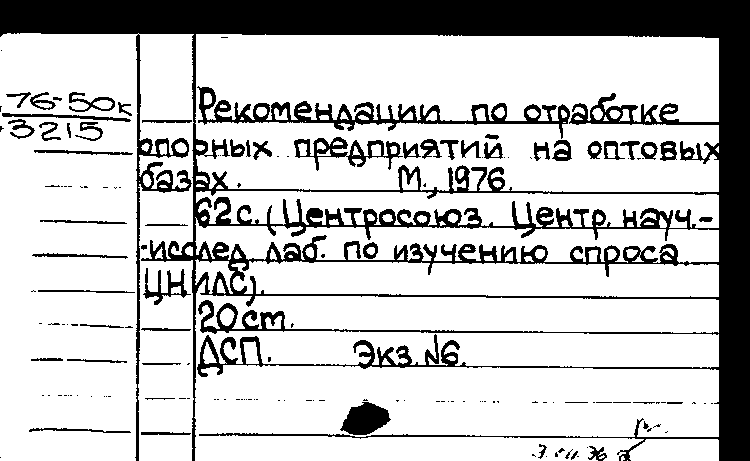 76-50к
3215
Рекомендации по отработке
опорных предприятий на оптовых
базах. М., 1976.
62с. (Центросоюз. Центр. науч.-
-исслед. лаб. по изучению спроса
ЦНИЛС).
20 ст.
ДСП. Экз. №6.